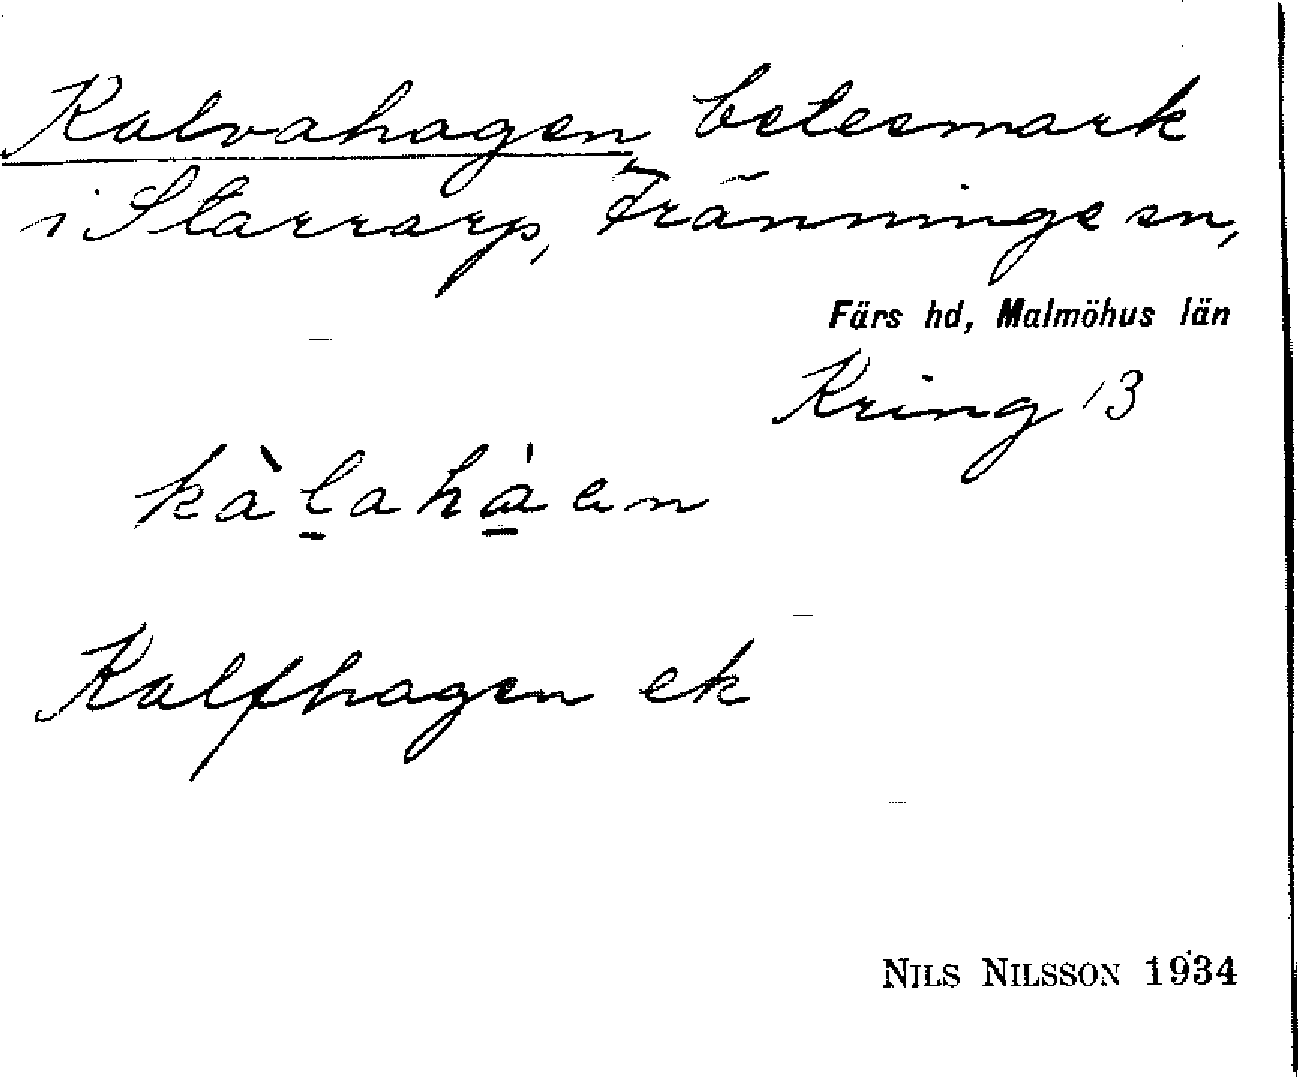 Kalvahagen, betesmark
i Starrarp, Tränninge sn,
Färs hd, Malmöhus län
Kring 13
kàl̠ahá̠en
Kalfhagen ek
NILS NILSSON 1934